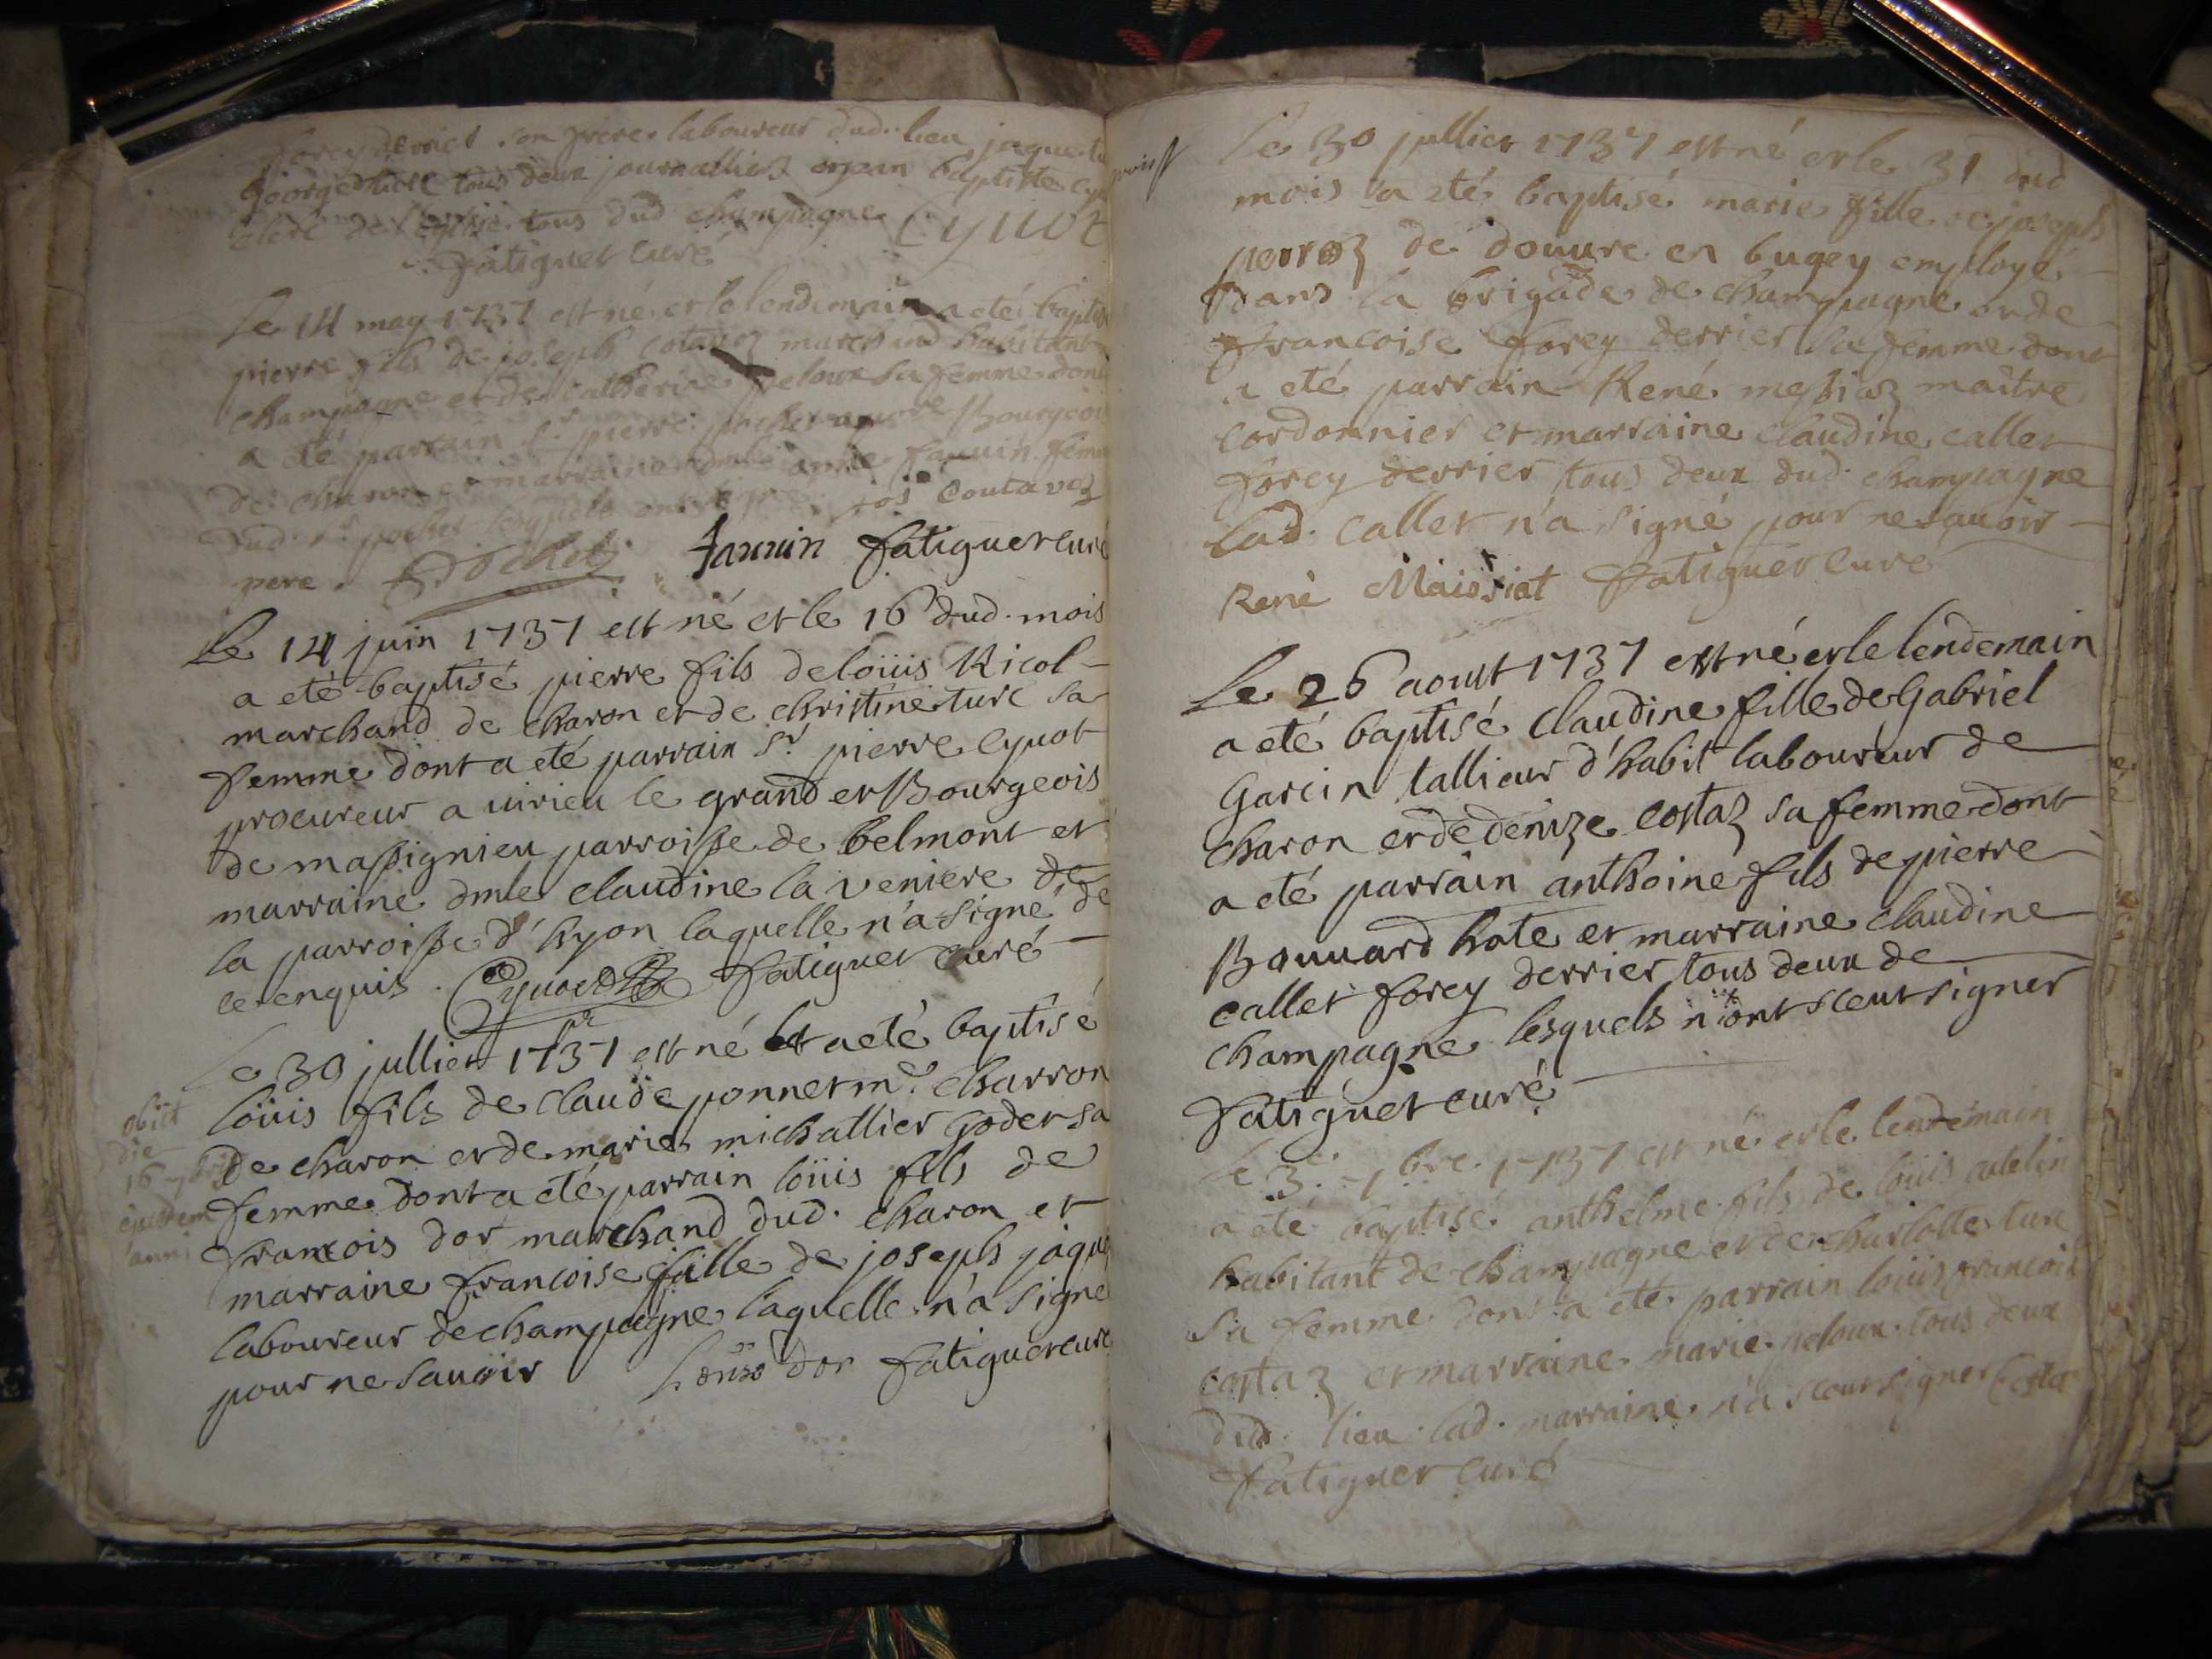 forey derrier son frere laboureur dud. lieu jaque
george ture tous deux journalliers et jean baptiste
clerc de l'eglise tous dud champagne Cyuot
fatiguet curé
Le 14 may 1737 est né et le lendemain a eté baptisé
pierre fils de joseph cotavoz marchand habitant
champagne et de catherine peloux sa femme dont
a eté parrain sr pierre pochet Bourgeois
de charon et marraine anne fauuin femme
dud. sr pochet lesquels ont signé jos Coutavoz
pere. Pochet fauuin fatiguet curé
Le 14 juin 1737 est né et le 16 dud. mois
a eté baptisé pierre fils de loüis Nicol-
marchand de charon et de christine ture sa
femme dont a eté parrain sr. pierre Cyuot
procureur a uirieu le grand et Bourgeois
de massignieu parroisse de belmont et
marraine dmle claudine la veniere de
la parroisse d'hyon laquelle n'a signé de
ce enquis. Cyuot fatiguet curé
Le 30 jullier 1737 est né et a eté baptisé
loüis fils de claude ponnet md. charron
de charon et de marie michallier goder sa
femme dont a eté parrain loüis fils de
francois dor marchand dud. charon et
marraine francoise fille de joseph jaque
laboureur de champagne laquelle n'a signé
pour ne sauoir Loüis dor fatiguet curé
obiit
die
16 7bris
ejusdem
anni
Le 30 jullier 1737 est né et le 31 dud
mois a eté baptisé marie fille de joseph
perroz de douure en bugey employé
dans la brigade de champagne et de
francoise forey derrier sa femme dont
a eté parrain René messiaz maître
cordonnier et marraine claudine callet
forey derrier tous deux dud. champagne
lad. callet n'a signé pour ne sauoir
René Maissiat fatiguet curé
Le 26 aoust 1737 est né et le lendemain
a eté baptisé claudine fille de Gabriel
Garcin tallieur d'habit laboureur de
charon et de denize costaz sa femme dont
a eté parrain anthoine fils de pierre
Bouuard hote et marraine claudine
callet forey derrier tous deux de
champagne lesquels n'ont sceut signer
fatiguet curé
Le 3e. 7bre. 1737 est né et le lendemain
a eté baptisé anthelme fils de loüis catelin
habitant de champagne et de charlotte ture
sa femme dont a eté parrain loüis francois
costaz et marraine marie peloux tous deux
dud. lieu lad. marraine n'a sceut signer Costaz
fatiguet curé